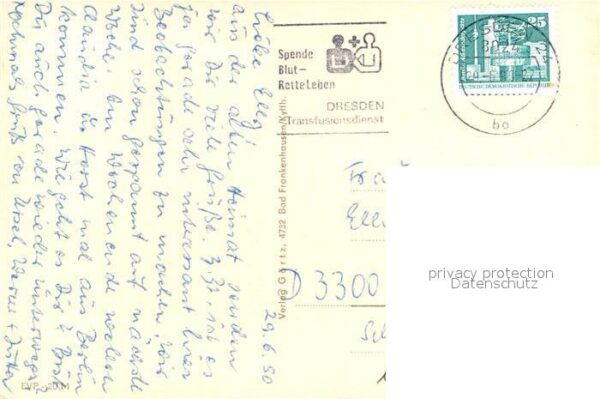 29.6.90
Liebe Elly,
aus der alten Heimat senden
wir Dir viele Grüße. Z. Zt. ist es
ja gerade sehr interessant hier
Beobachtungen zu machen. Wir
sind schon gespannt auf nächste
Woche. Am Wochenende wollen
Claudia u. Horst mal aus Berlin
kommen. Wie geht es Dir? Bist
Du auch gerade wieder unterwegs?
Nochmals Gruß von Ursel, Werner + Jutta
Spende
Blut-
Rette Leben
DRESDEN
Transfusionsdienst
25
DEUTSCHE DEMOKRATISCHE REPUBLIK
bo
Verlag Görtz, 4732 Bad Frankenhausen/Kyffh.
Frau
D 3300
privacy protection
Datenschutz